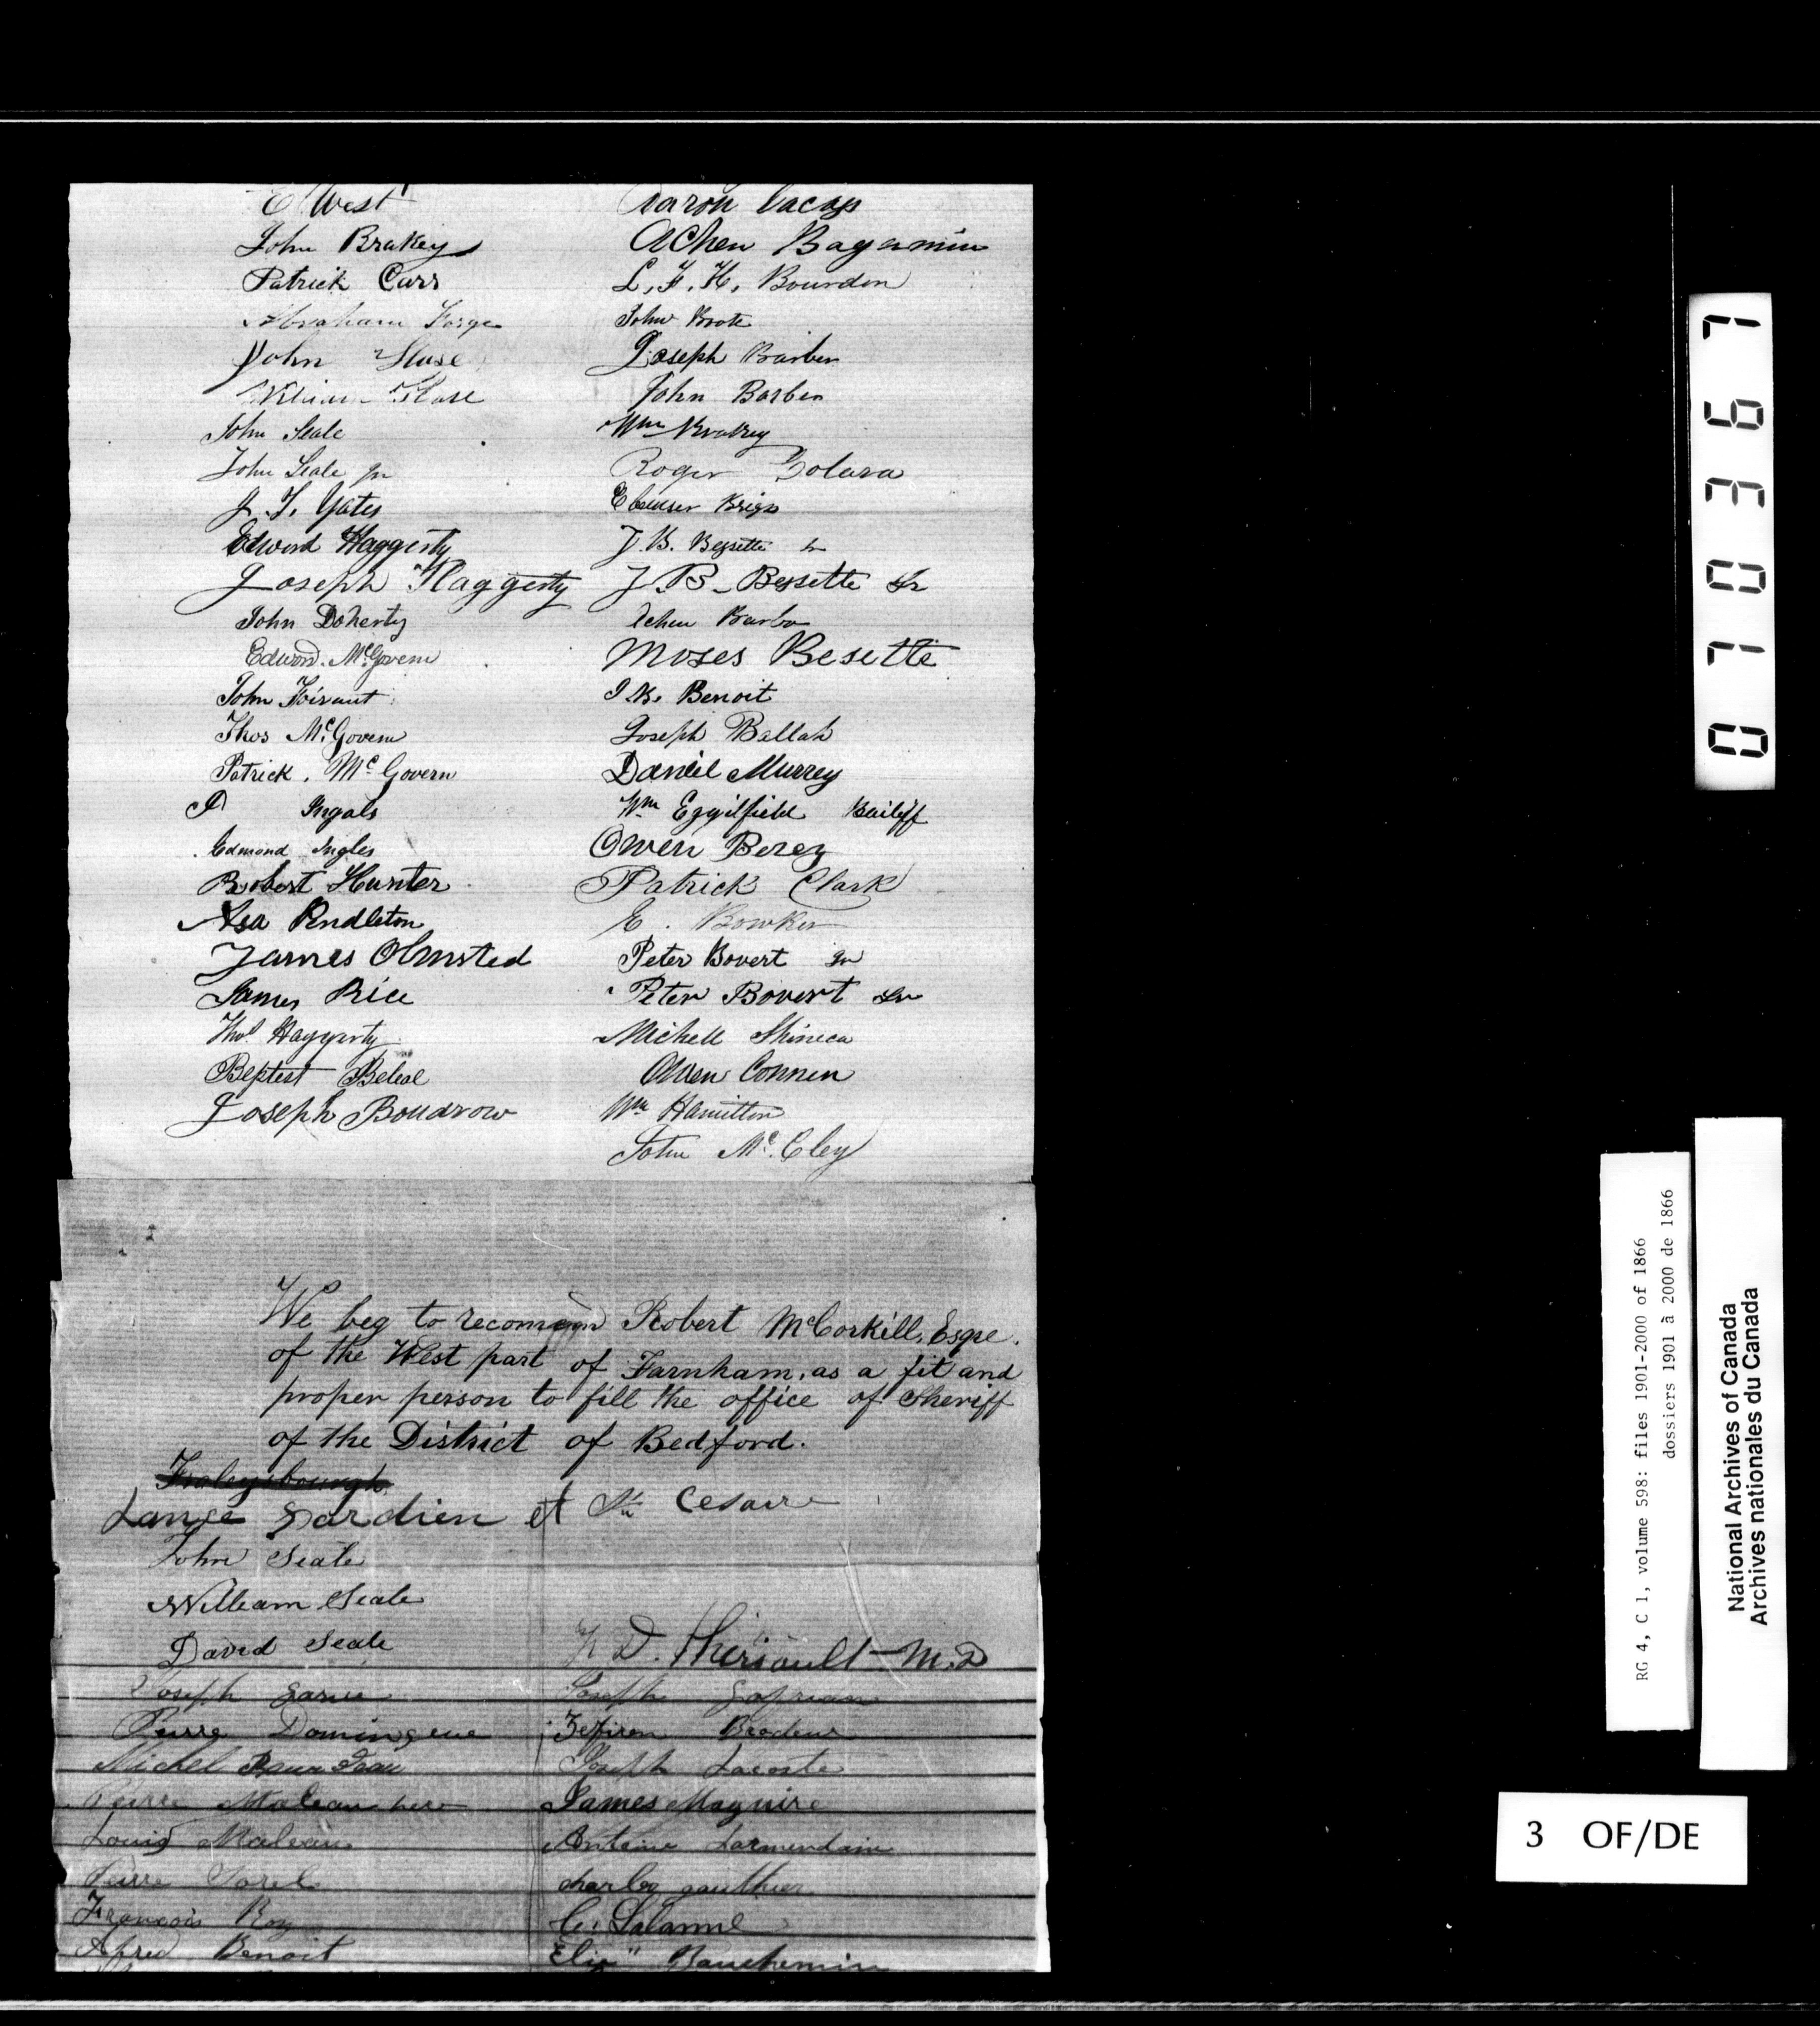 E West
John Brakey
Patrick Carr
Abraham Forge
John Hase
William Hase
John Seale
John Seale Jnr
J. T. Yates
Edword Haggerty
Joseph Haggerty
John Doherty
Edword McGovern
John Foisant
Thos McGovern
Patrick McGovern
P Ingals
Edmond Ingles
Robert Hunter
Asa Pendleton
James Olmsted
James Rice
Thos Haggerty
Beptest Beleal
Joseph Boudrow
Aaron
Achen Bagamin
L. F. H. Bourdon
John Brote
Joseph Barber
John Barber
Wm Brakey
Roger
Ebenser Brigs
J. B. Bessette Jr
J. B. Bessette Sr
Achen Barbo
Moses Besette
J. B. Benoit
Joseph Ballah
Daniel Murrey
Wm Eggilfield Bailiff
Owen Berey
Patrick Clark
E. Bowker
Peter Bovert Jnr
Peter Bovert Snr
Michell Shineca
Owen Connen
Wm Hamilton
John McCley
We beg to recomend Robert McCorkill, Esqre.
of the West part of Farnham, as a fit and
proper person to fill the office of Sheriff
of the District of Bedford.
Lange Gardien et St Cesaire
John Seale
William Seale
David Seale
Joseph
Pierre Domingeue
Michel
Pierre Maleau
Louis Maleau
Pierre Sorel
François Roy
Alfred Benoit
D. Theriault M.D
Joseph
Zeffiren Brodeur
Joseph Lacoste
James Maguire
Antoine Larmendain
charles gauthier
C. Lalanne
Elie Bauchemin
0710367
RG 4, C 1, volume 598: files 1901-2000 of 1866
dossiers 1901 à 2000 de 1866
National Archives of Canada
Archives nationales du Canada
3 OF/DE